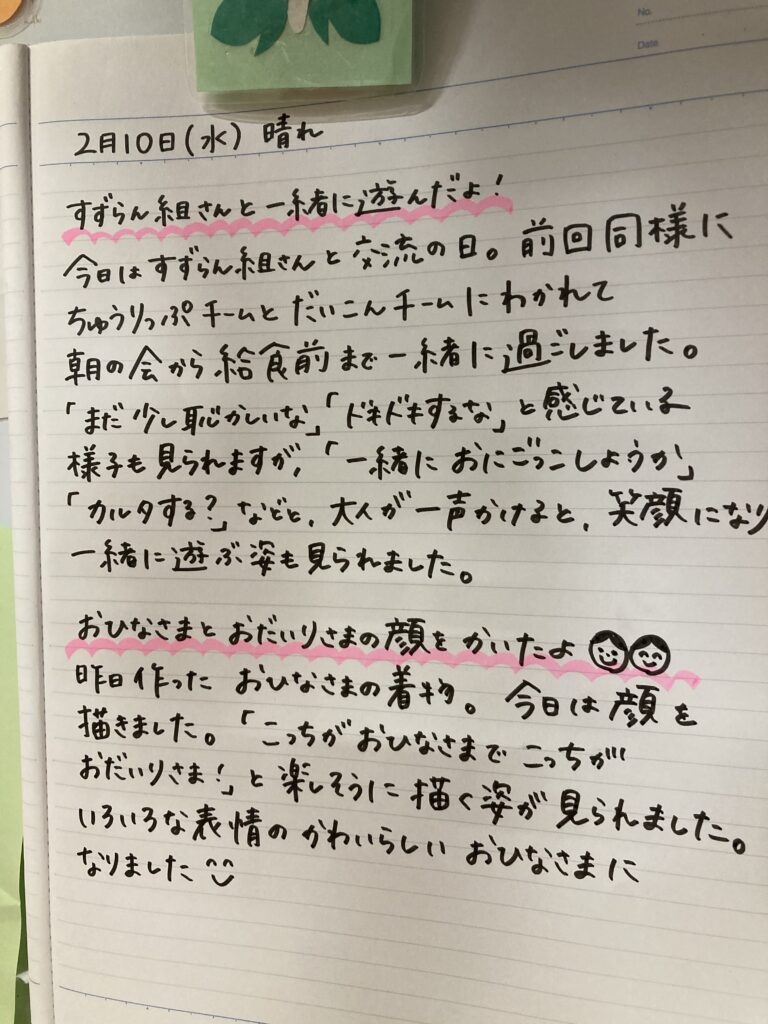 No.
Date
2月10日(水) 晴れ
すずらん組さんと一緒に遊んだよ!
今日はすずらん組さんと交流の日。前回同様に
ちゅうりっぷチームとだいこんチームにわかれて
朝の会から給食前まで一緒に過ごしました。
「まだ少し恥かしいな」「ドキドキするな」と感じている
様子も見られますが,「一緒におにごっこしようか」
「カルタする?」などと,大人が一声かけると,笑顔になり
一緒に遊ぶ姿も見られました。
おひなさまとおだいりさまの顔をかいたよ
昨日作ったおひなさまの着物。今日は顔を
描きました。「こっちがおひなさまでこっちが
おだいりさま!」と楽しそうに描く姿が見られました。
いろいろな表情のかわいらしいおひなさまに
なりました